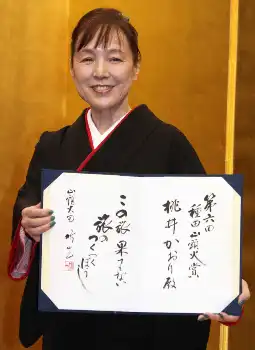 第六回
種田山頭火賞
桃井かおり殿
この旅、果てない
旅の
つくつくぼうし
山頭火